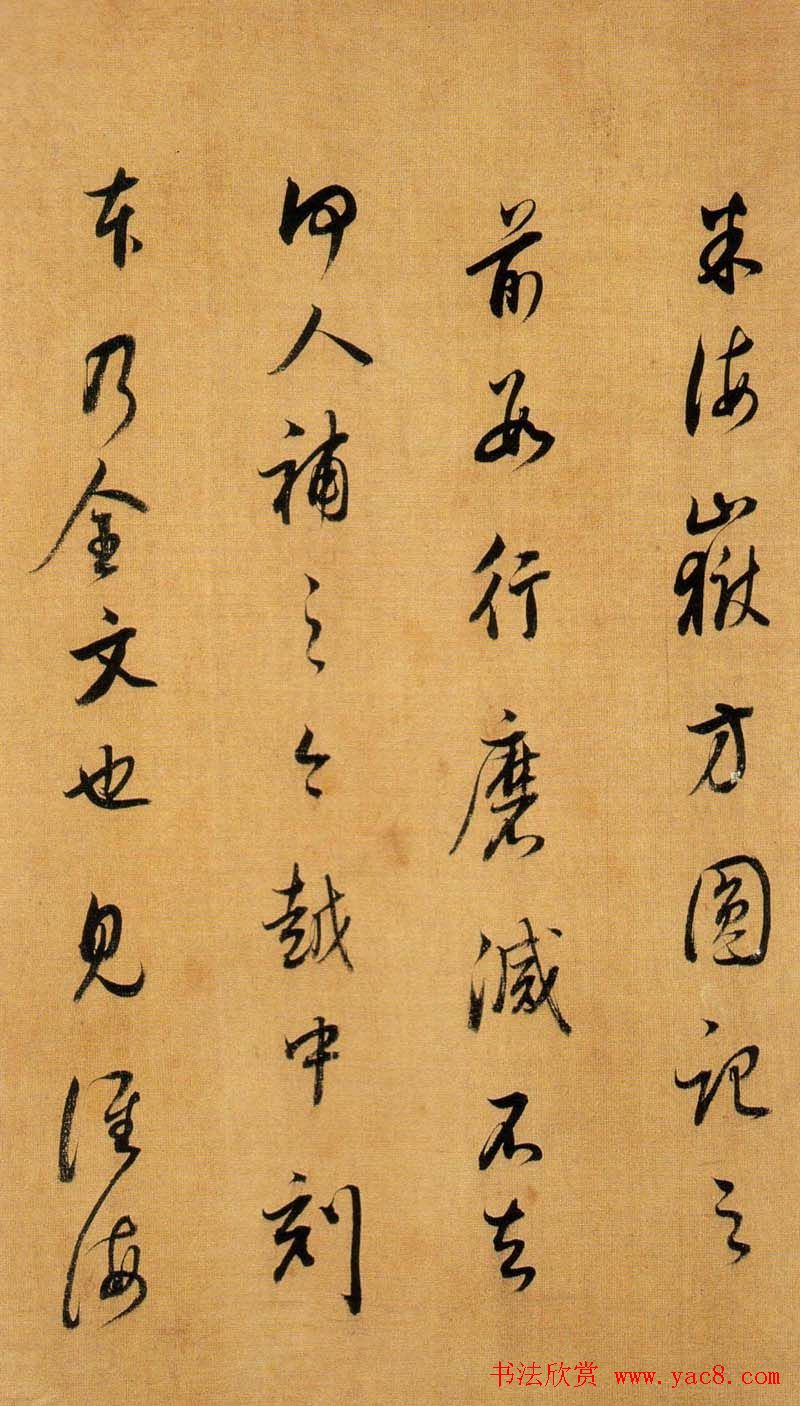 米海嶽方圓記之
前數行磨滅不知
何人補之今越中刻
本乃全文也見淮海
书法欣赏 www.yac8.com